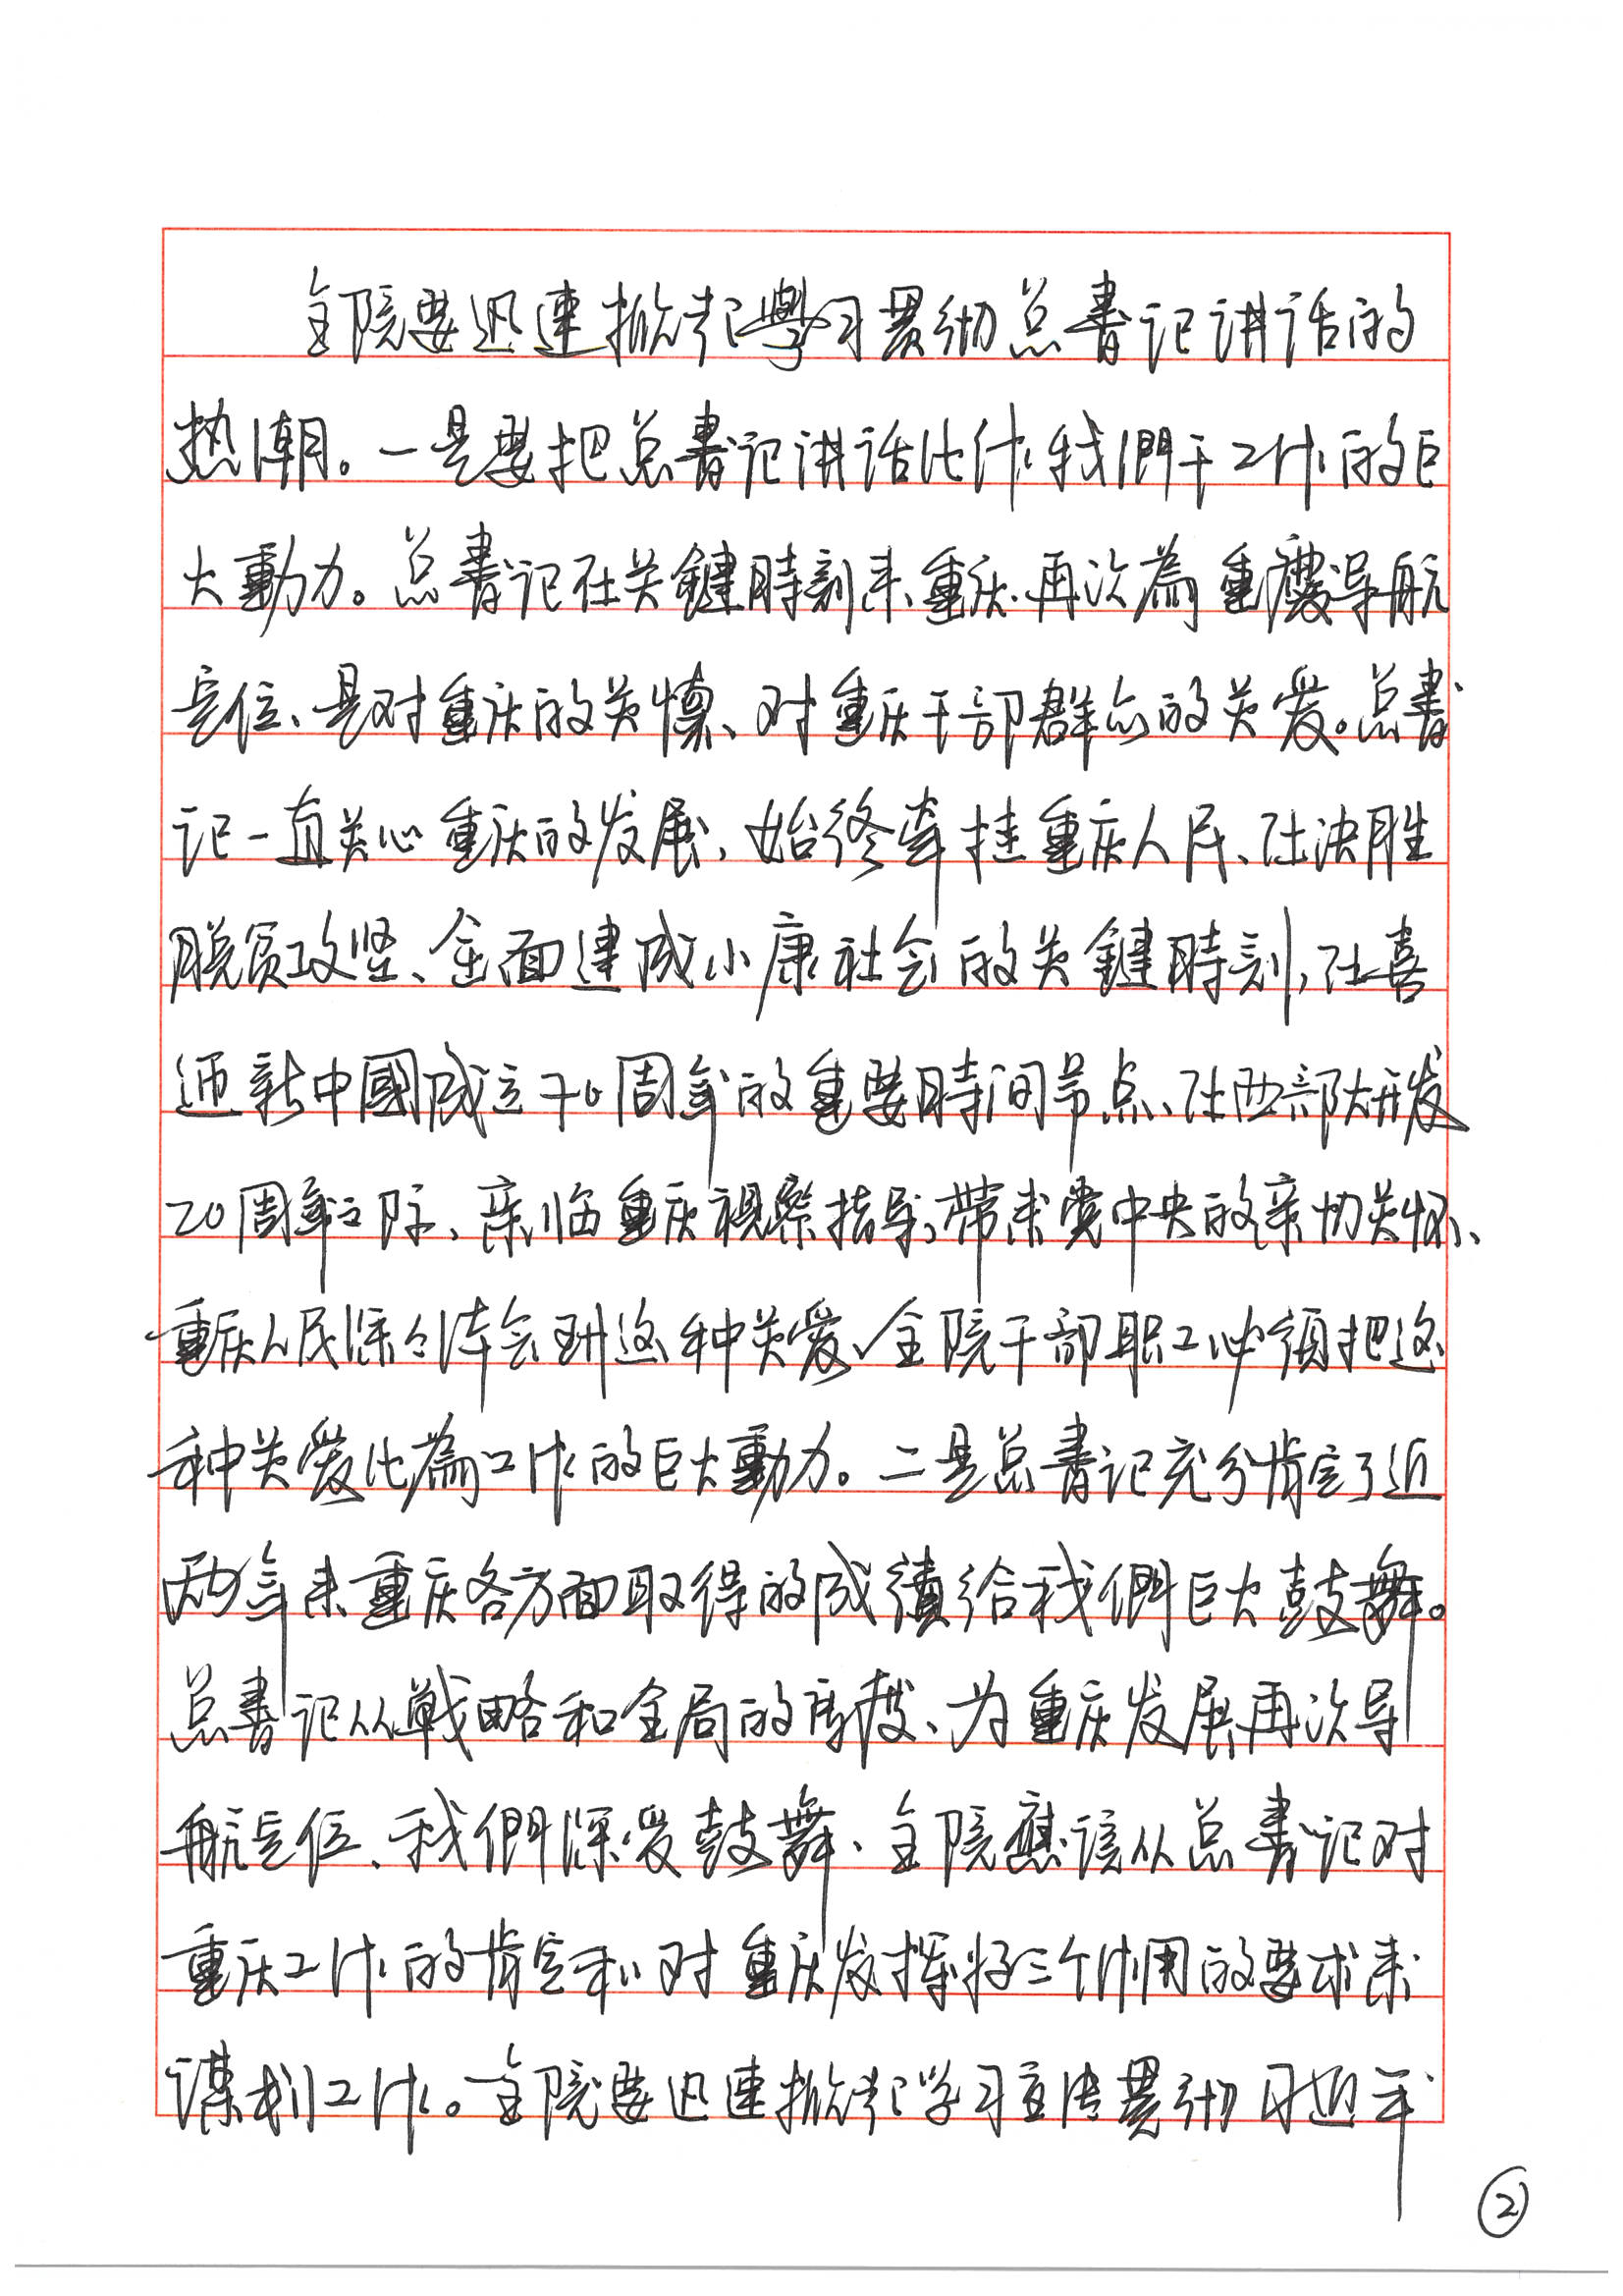 全院要迅速掀起學习贯彻总書记讲话的
热潮。一是要把总書记讲话化作我們干工作的巨
大動力。总書记在关鍵時刻来重庆、再次為重慶导航
定位、是对重庆的关懷、对重庆干部群众的关爱。总書
记一直关心重庆的发展，始终牵挂重庆人民、在决胜
脱贫攻坚、全面建成小康社会的关鍵時刻，在喜
迎新中國成立70周年的重要時间节点、在西部大开发
20周年之际、亲临重庆視察指导，带来党中央的亲切关怀、
重庆人民深々体会到这种关爱、全院干部职工必须把这
种关爱化為工作的巨大動力。二是总書记充分肯定了近
两年来重庆各方面取得的成績给我們巨大鼓舞。
总書记从戰略和全局的高度、为重庆发展再次导
航定位、我們深受鼓舞、全院應該从总書记对
重庆工作的肯定和对重庆发揮好三个作用的要求来
谋划工作。全院要迅速掀起学习宣传贯彻习近平
②